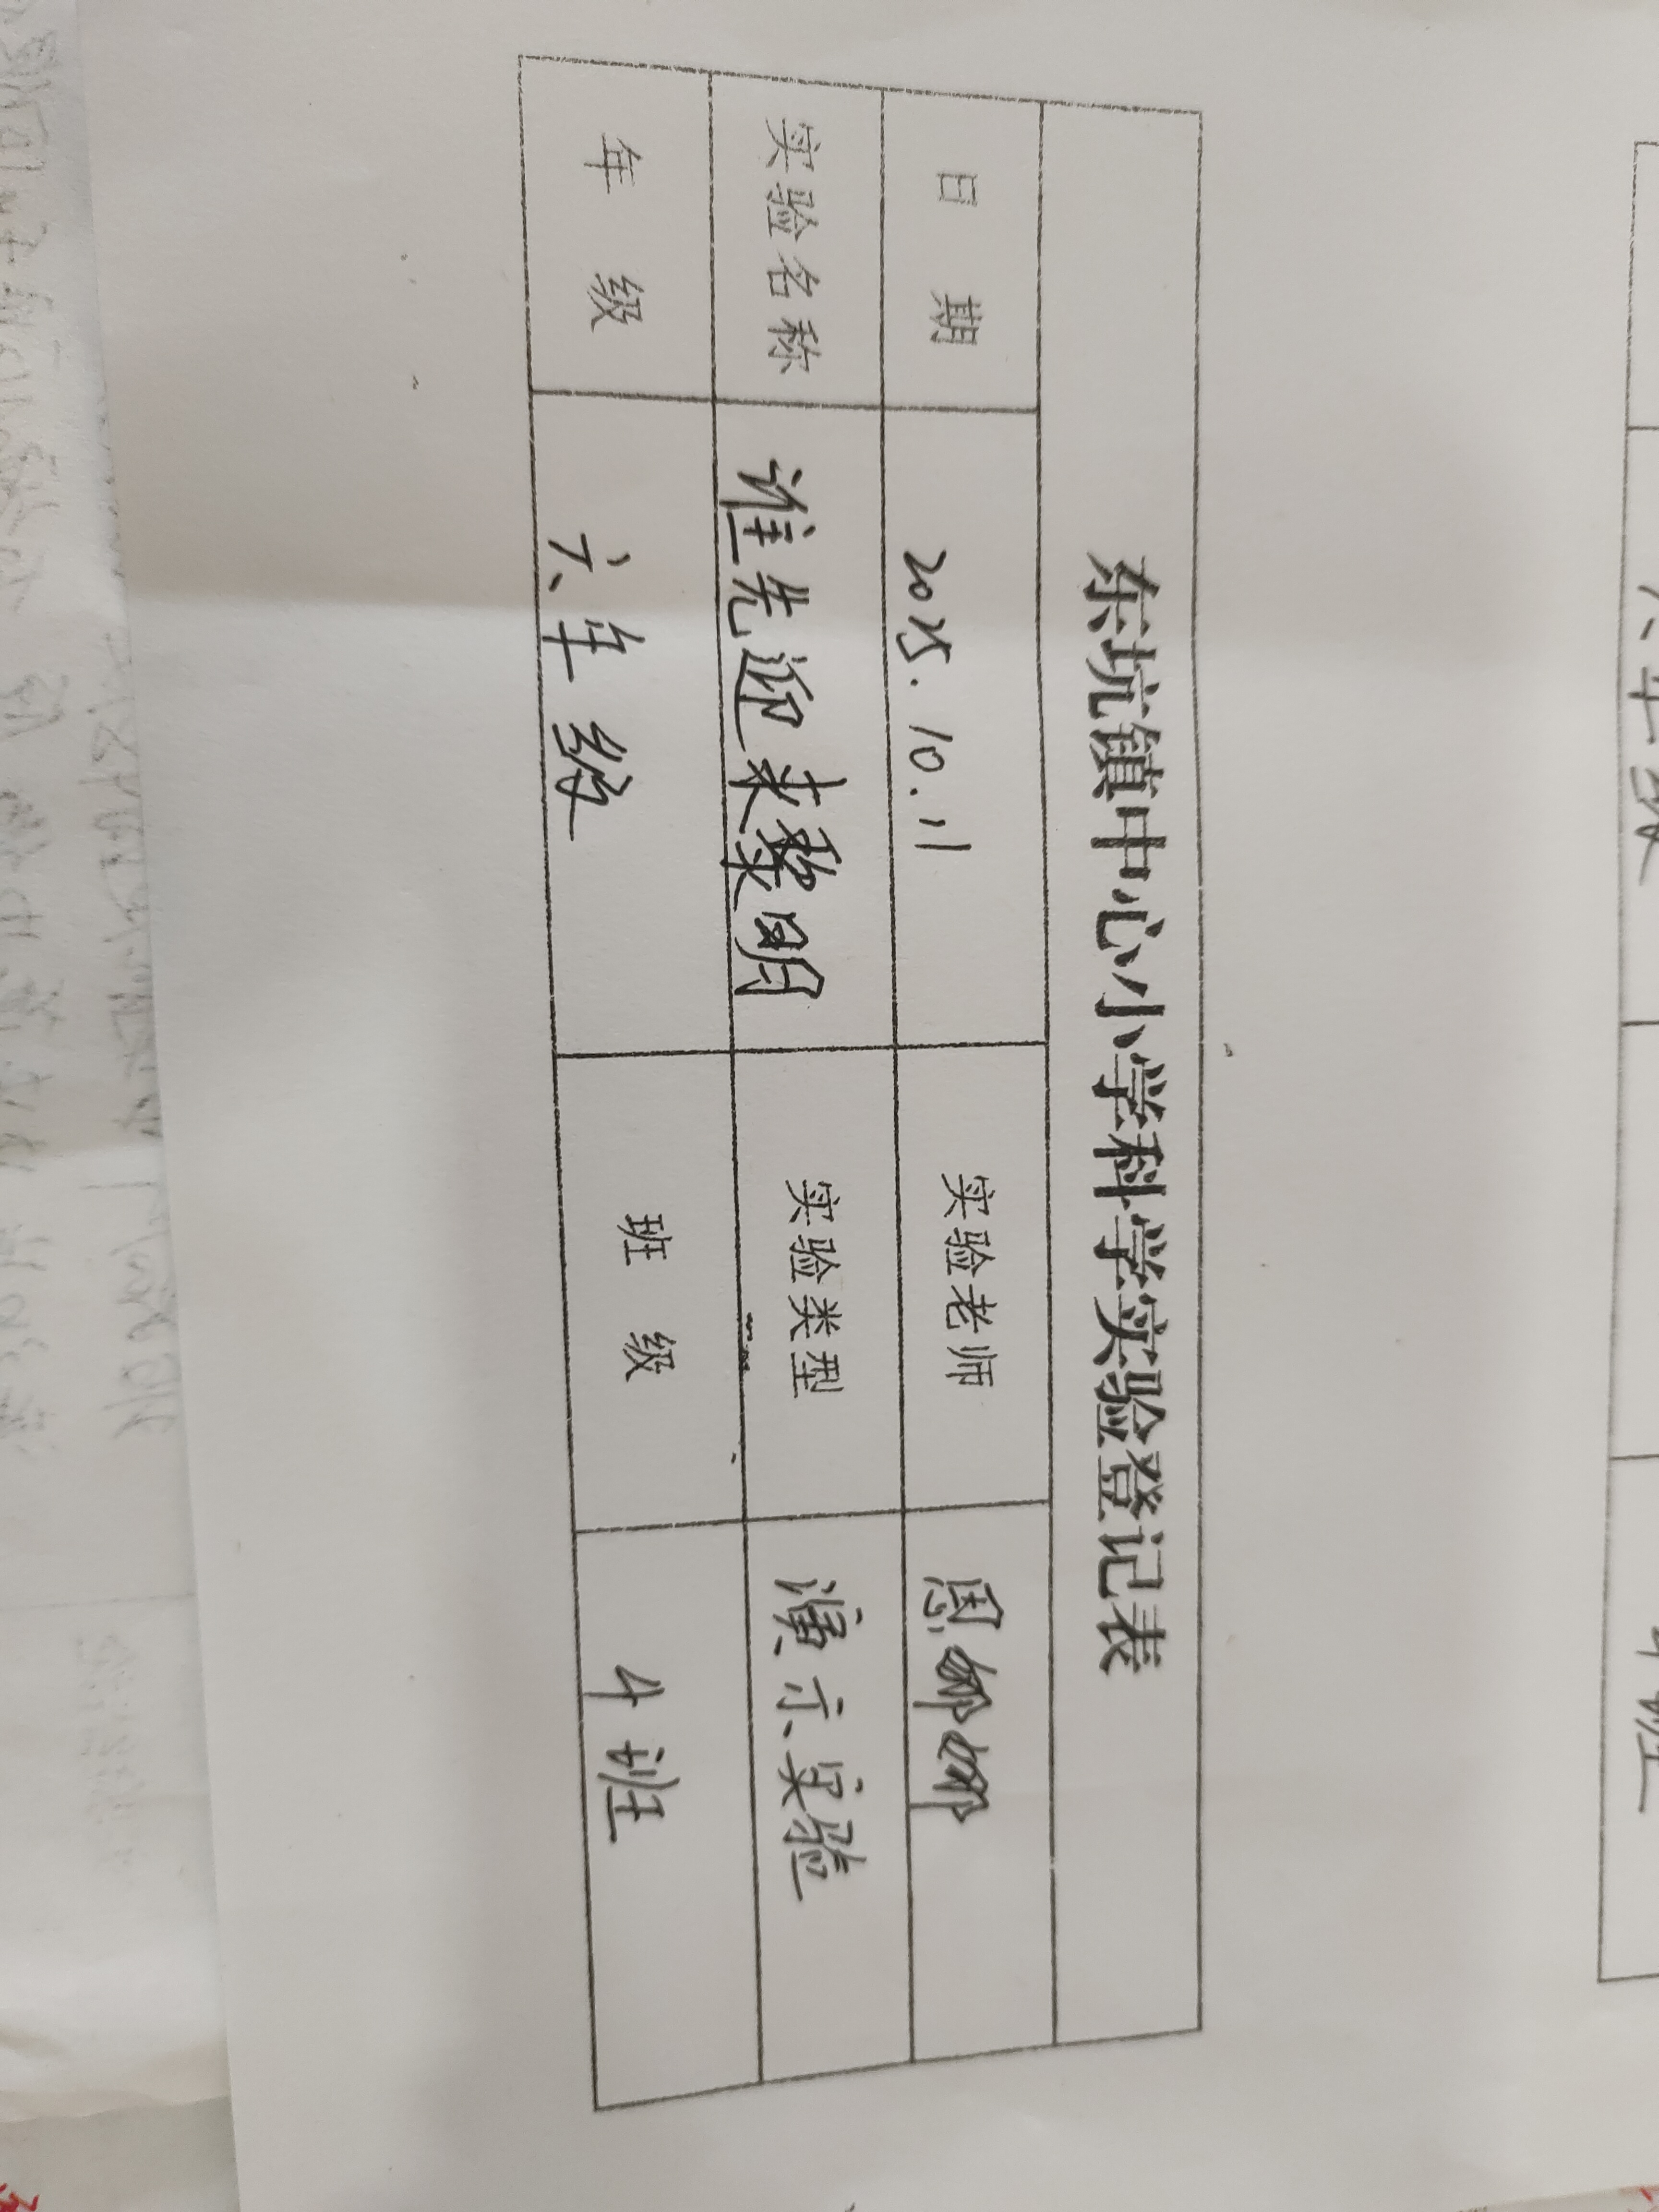 东坑镇中心小学科学实验登记表
日期 2025.10.11 实验老师 娜娜
实验名称 谁先迎来黎明 实验类型 演示实验
年级 六年级 班级 4班